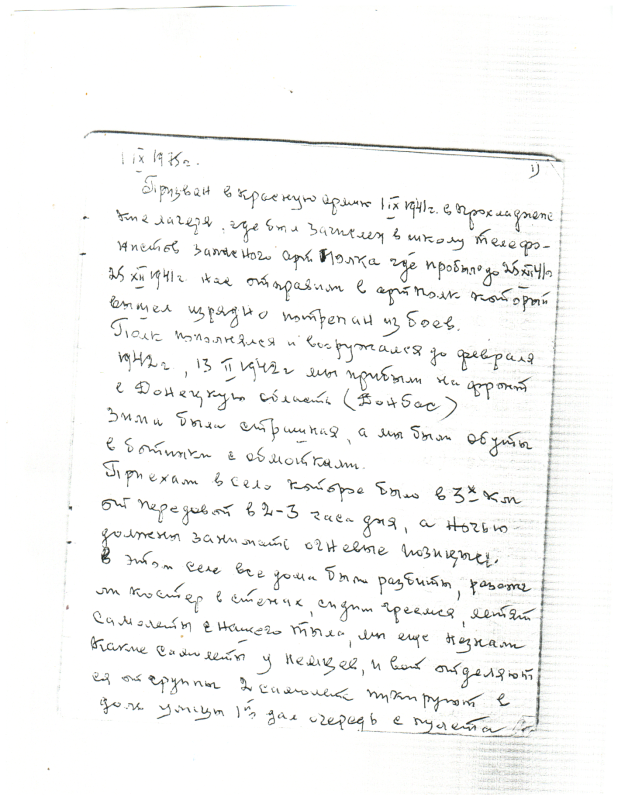 1 IX 1975 г.
1)
Призван в красную армию 1 IX 1941 г. в Прохладнен
ские лагеря, где был зачислен в школу телефо-
нистов запасного арт полка где пробыл до 25 XII 41 г.
25 XII 1941 г. нас отправили в артполк который
вышел изрядно потрепан из боев.
Полк пополнялся и вооружался до февраля
1942 г, 13 II 1942 г мы прибыли на фронт
в Донецкую область (Донбас)
Зима была страшная, а мы были обуты
в ботинки с обмотками.
Приехали в село которое было в 3х км
от передовой в 2-3 часа дня, а ночью
должны занимать огневые позиции.
В этом селе все дома были разбиты, разож
ли костер в стенах, сидим греемся, летят
самолеты с нашего тыла, мы еще не знали
какие самолеты у немцев, и вот отделяют
ся от группы 2 самолета пикируют в
доль улицы 1й дал очередь с пулемета